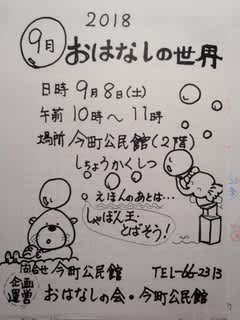 2018
9月 おはなしの世界
日時 9月8日(土)
午前 10時〜11時
場所 今町公民館(2階)
しちょうかくしつ
えほんのあとは…
しゃぼん玉…
とばそう!
問合せ 今町公民館 TEL-66-2313
企画運営 おはなしの会・今町公民館